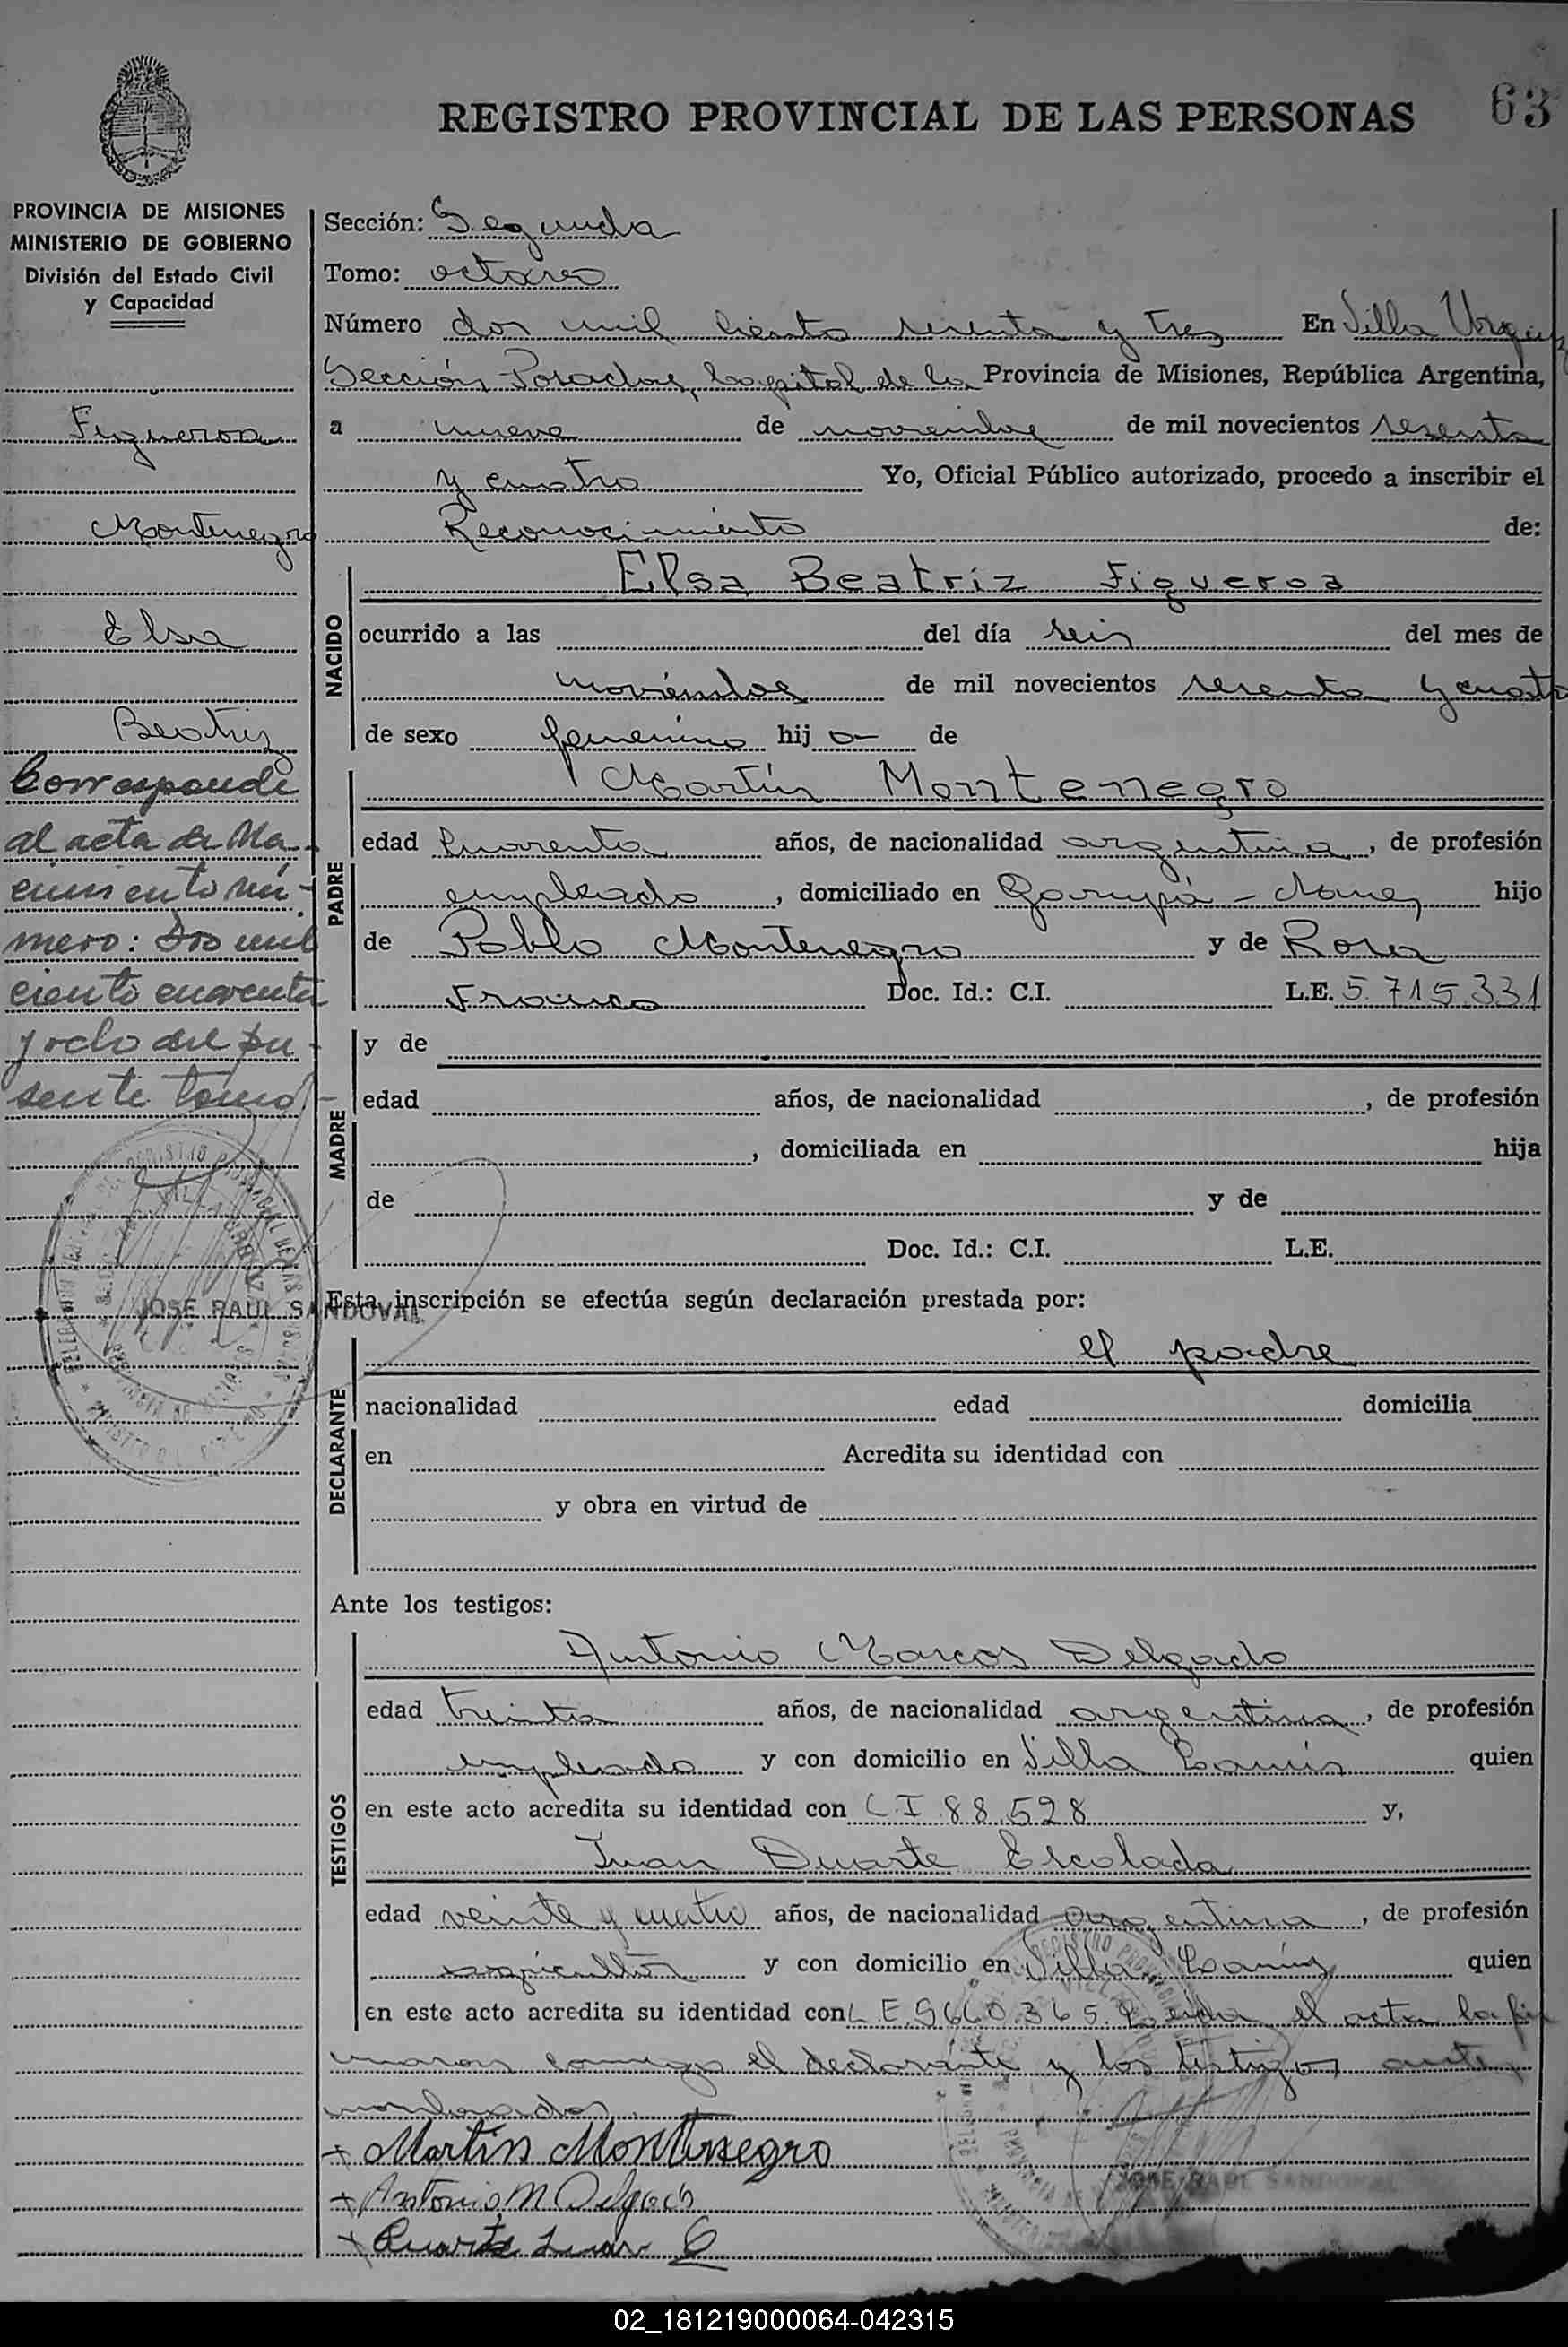 REGISTRO PROVINCIAL DE LAS PERSONAS 63
PROVINCIA DE MISIONES
MINISTERIO DE GOBIERNO
División del Estado Civil
y Capacidad
Figueroa
Montenegro
Elsa
Beatriz
Corresponde
al acta de Na-
cimiento nú-
mero: Dos mil
ciento cuarenta
y ocho del pre-
sente tomo
JOSE RAUL SANDOVAL
Sección: Segunda
Tomo: octavo
Número dos mil ciento sesenta y tres En Villa Urquiza
Sección Posadas, Capital de la Provincia de Misiones, República Argentina,
a nueve de noviembre de mil novecientos sesenta
y cuatro Yo, Oficial Público autorizado, procedo a inscribir el
Reconocimiento de:
NACIDO
Elsa Beatriz Figueroa
ocurrido a las del día seis del mes de
noviembre de mil novecientos sesenta y cuatro
de sexo femenino hij a de
PADRE
Martín Montenegro
edad cuarenta años, de nacionalidad argentina, de profesión
empleado, domiciliado en Garupá - Mnes hijo
de Pablo Montenegro y de Rosa
Franco Doc. Id.: C.I. L.E. 5.715.331
MADRE
y de
edad años, de nacionalidad , de profesión
, domiciliada en hija
de y de
Doc. Id.: C.I. L.E.
Esta inscripción se efectúa según declaración prestada por:
DECLARANTE
el padre
nacionalidad edad domicilia
en Acredita su identidad con
y obra en virtud de
Ante los testigos:
TESTIGOS
Antonio Marcos Delgado
edad treinta años, de nacionalidad argentina, de profesión
empleado y con domicilio en Villa Lanús quien
en este acto acredita su identidad con C.I 88.528 y,
Juan Duarte Escolada
edad veinte y cuatro años, de nacionalidad argentina, de profesión
agricultor y con domicilio en Villa Lanús quien
en este acto acredita su identidad con L E. 9660.365. Leida el acta la fir
maron conmigo el declarante y los testigos ante
nombrados.
+ Martin Montenegro
+ Antonio M Delgado
+ Duarte Juan E
JOSE RAUL SANDOVAL
02_181219000064-042315